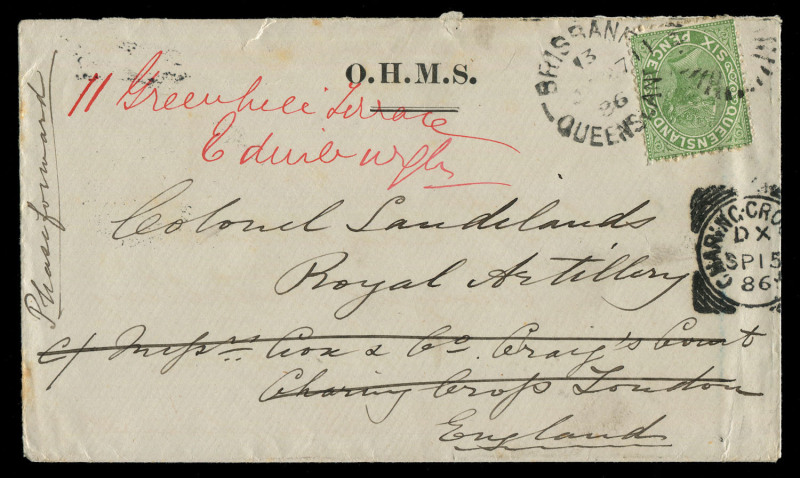 O.H.M.S.
BRISBANE
13
86
QUEENSLAND
QUEENSLAND
SIX PENCE
11 Greenhill Terrace
Edinburgh
Please forward
Colonel Sandilands
Royal Artillery
CHARING CRO
DX
SP 15
86
c/ Messrs Cox & Co. Craig's Court
Charing Cross London
England